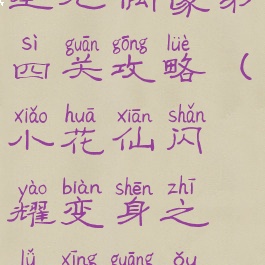 sì guān gōng lüè
四关攻略（
xiǎo huā xiān shǎn
小花仙闪
yào biàn shēn zhī
耀变身之
lǚ xīng guāng